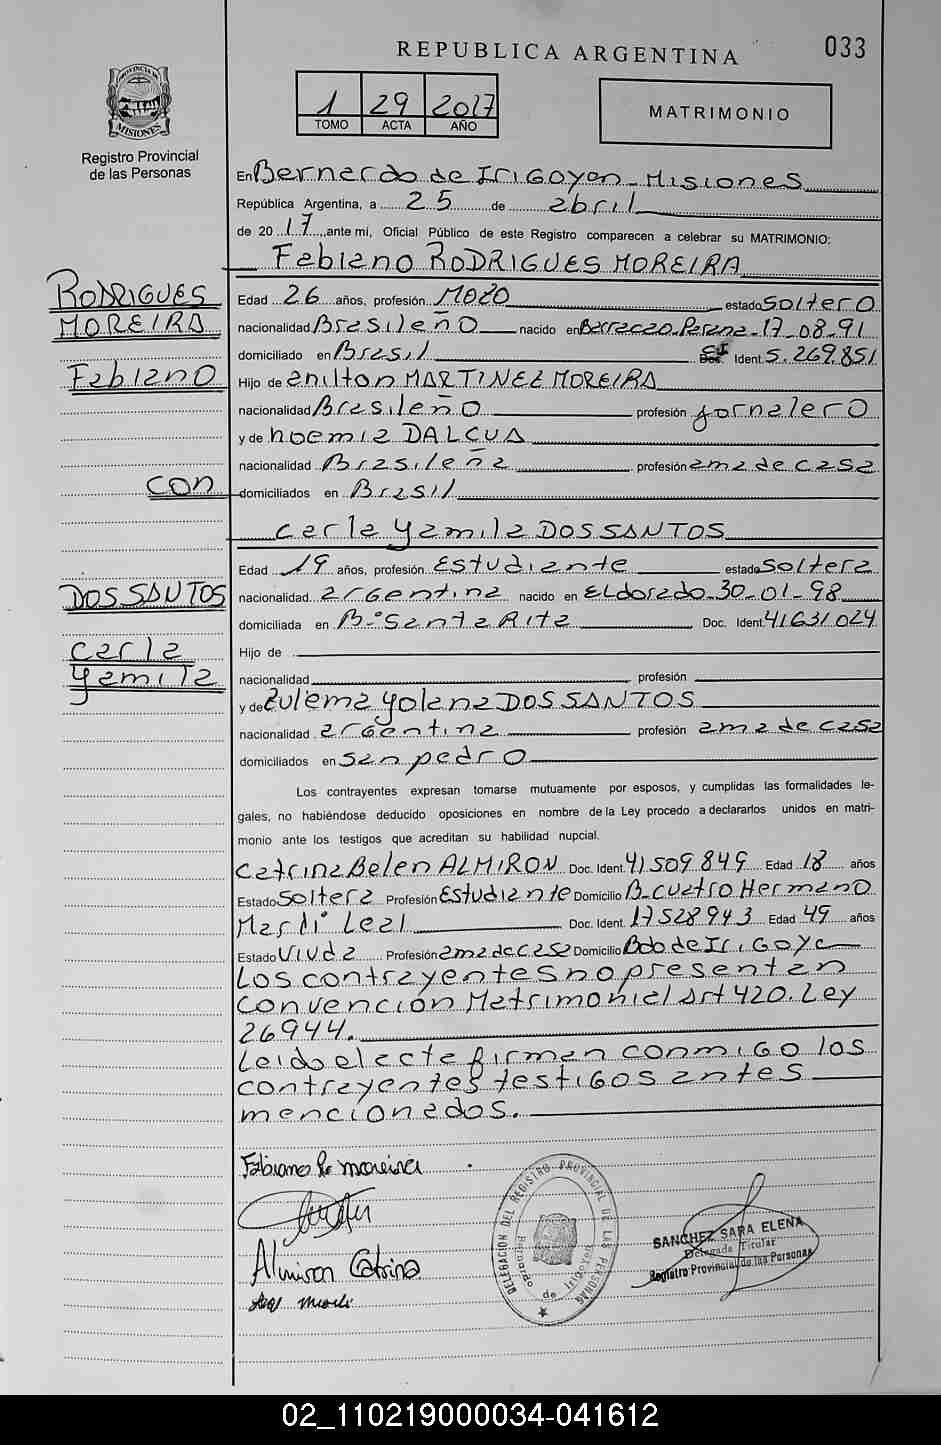 REPUBLICA ARGENTINA
033
1 29 2017
TOMO ACTA AÑO
MATRIMONIO
PROVINCIA DE
MISIONES
Registro Provincial
de las Personas
En Bernardo de IRIGOYEN - Misiones
República Argentina, a 25 de abril
de 2017, ante mi, Oficial Público de este Registro comparecen a celebrar su MATRIMONIO:
Fabiano RODRIGUES MOREIRA
RODRIGUES
MOREIRA
Fabiano
Edad 26 años, profesión Mozo estado soltero
nacionalidad Brasileño nacido en Barracao-Parana-17-08-91
domiciliado en Brasil CI Ident. 5.269.851
Hijo de enilton MARTINEZ MOREIRA
nacionalidad Brasileño profesión jornalero
y de noemia DALCUA
nacionalidad Brasileña profesión ama de casa
con
domiciliados en Brasil
carla yamila DOS SANTOS
Edad 19 años, profesión Estudiante estado soltera
DOS SANTOS
nacionalidad argentina nacido en ELdorado-30-01-98
domiciliada en B-º Santa Rita Doc. Ident. 41631024
carla
Yamila
Hijo de
nacionalidad profesión
y de Zulema yolana DOS SANTOS
nacionalidad argentina profesión ama de casa
domiciliados en san pedro
Los contrayentes expresan tomarse mutuamente por esposos, y cumplidas las formalidades le-
gales, no habiéndose deducido oposiciones en nombre de la Ley procedo a declararlos unidos en matri-
monio ante los testigos que acreditan su habilidad nupcial.
Catrina Belen ALMIRON Doc. Ident. 41509849 Edad 18 años
Estado soltera Profesión Estudiante Domicilio B. cuatro Hermano
Marli Leal Doc. Ident. 17528943 Edad 49 años
Estado viuda Profesión ama de casa Domicilio Bdo de IRIGOYE
Los contrayentes no presentan
convención Matrimonial Art 420. Ley
26944.
Leido el acta firman conmigo los
contrayentes testigos antes
mencionados.
Fabiano R. moreira
Almiron Catrina
Leal Marli
DELEGACION DEL REGISTRO PROVINCIAL DE LAS PERSONAS
Bernardo de Irigoyen
SANCHEZ SARA ELENA
Delegada Titular
Registro Provincial de las Personas
02_110219000034-041612